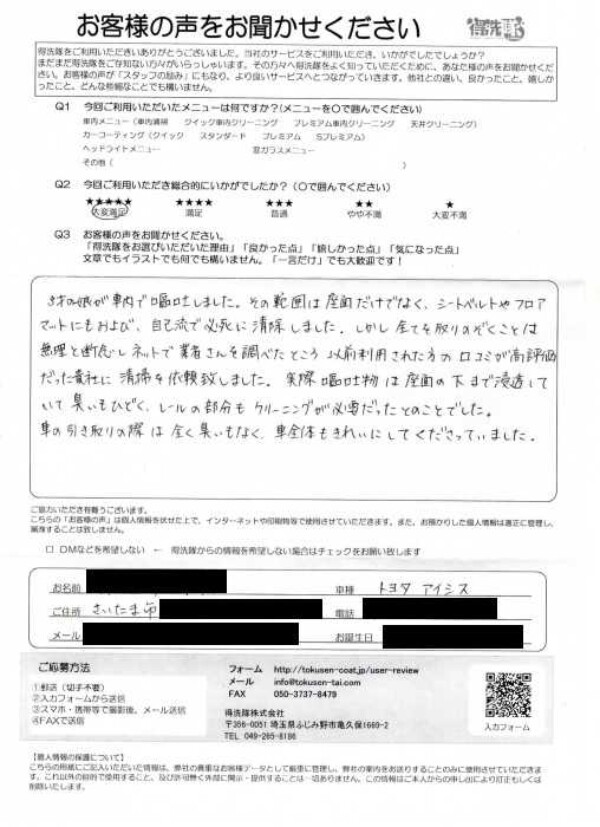 お客様の声をお聞かせください
得洗隊
得洗隊をご利用いただきありがとうございました。当社のサービスをご利用いただき、いかがでしたでしょうか?
まだまだ得洗隊をご存知ない方々がいらっしゃいます。その方々へ得洗隊をよく知っていただくために、あなた様の声をお聞かせください。お客様の声が「スタッフの励み」にもなり、より良いサービスへとつながっていきます。他社との違い、良かったこと、嬉しかったこと、どんな些細なことでも構いません。
Q1 今回ご利用いただいたメニューは何ですか?(メニューを○で囲んでください)
車内メニュー(車内清掃 クイック車内クリーニング プレミアム車内クリーニング 天井クリーニング)
カーコーティング(クイック スタンダード プレミアム Sプレミアム)
ヘッドライトメニュー 窓ガラスメニュー
その他( )
Q2 今回ご利用いただき総合的にいかがでしたか?(○で囲んでください)
★★★★★ ★★★★ ★★★ ★★ ★
大変満足 満足 普通 やや不満 大変不満
Q3 お客様の声をお聞かせください。
「得洗隊をお選びいただいた理由」「良かった点」「嬉しかった点」「気になった点」
文章でもイラストでも何でも構いません。「一言だけ」でも大歓迎です!
3才の娘が車内で嘔吐しました。その範囲は座面だけでなく、シートベルトやフロア
マットにもおよび、自己流で必死に清掃しました。しかし全てを取りのぞくことは
無理と断念しネットで業者さんを調べたところ 以前利用された方の口コミが高評価
だった貴社に清掃を依頼致しました。実際嘔吐物は座面の下まで浸透して
いて臭いもひどく、レールの部分もクリーニングが必要だったとのことでした。
車の引き取りの際は全く臭いもなく、車全体もきれいにしてくださっていました。
ご協力いただき有難うございます。
こちらの「お客様の声」は個人情報を伏せた上で、インターネットや印刷物等で使用させていただきます。また、お預かりした個人情報は適正に管理し、
漏洩することは致しません。
□ DMなどを希望しない ← 得洗隊からの情報を希望しない場合はチェックをお願い致します
お名前 車種 トヨタ アイシス
ご住所 さいたま市 電話
メール お誕生日
ご応募方法
①郵送(切手不要)
②入力フォームから送信
③スマホ・携帯等で撮影後、メール送信
④FAXで送信
フォーム http://tokusen-coat.jp/user-review
メール info@tokusen-tai.com
FAX 050-3737-8479
得洗隊株式会社
〒356-0051 埼玉県ふじみ野市亀久保1660-2
TEL 049-265-8186
入力フォーム
【個人情報の保護について】
こちらの用紙にご記入いただいた情報は、弊社の貴重なお客様データとして厳重に管理し、弊社の案内をお送りすることのみに使用させていただきま
す。これ以外の目的で使用すること、及び許可無く外部に開示・提供することは一切ありません。この情報はご本人からの申し出により訂正もしくは
削除いたします。